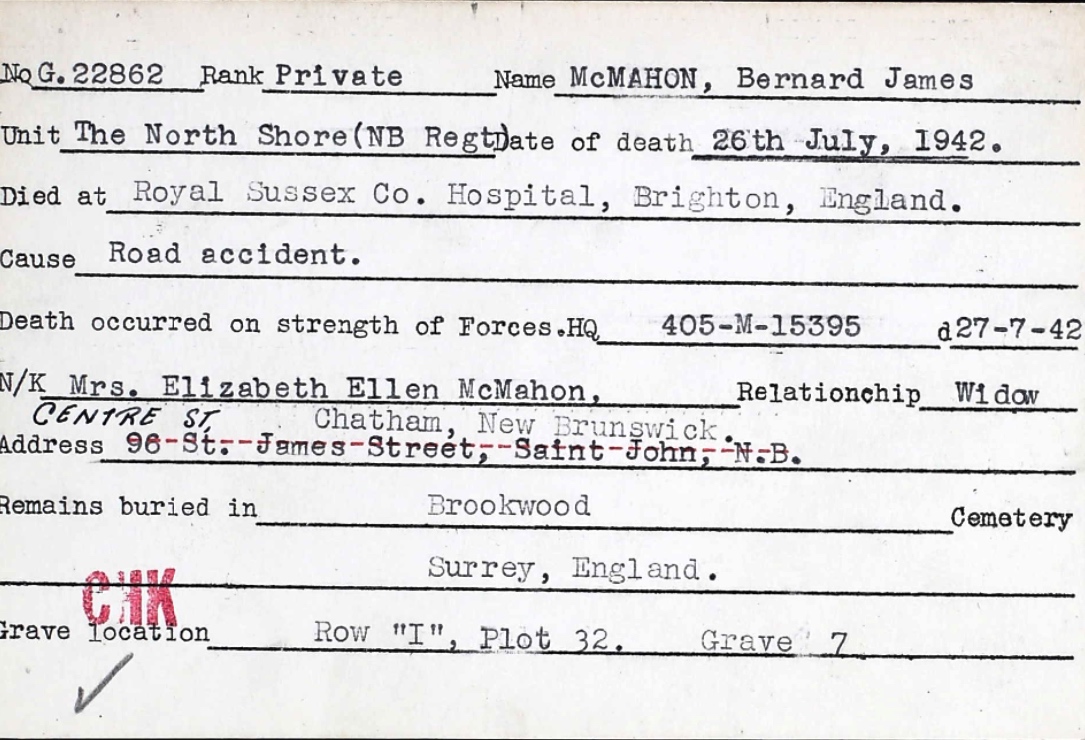 No G.22862 Rank Private Name McMAHON, Bernard James
Unit The North Shore(NB Regt) Date of death 26th July, 1942.
Died at Royal Sussex Co. Hospital, Brighton, England.
Cause Road accident.
Death occurred on strength of Forces.HQ 405-M-15395 d 27-7-42
N/K Mrs. Elizabeth Ellen McMahon, Relationship Widow
CENTRE ST, Chatham, New Brunswick.
Address 96 St. James Street, Saint John, N.B.
Remains buried in Brookwood Cemetery
Surrey, England.
CHK
Grave location Row "I", Plot 32. Grave 7